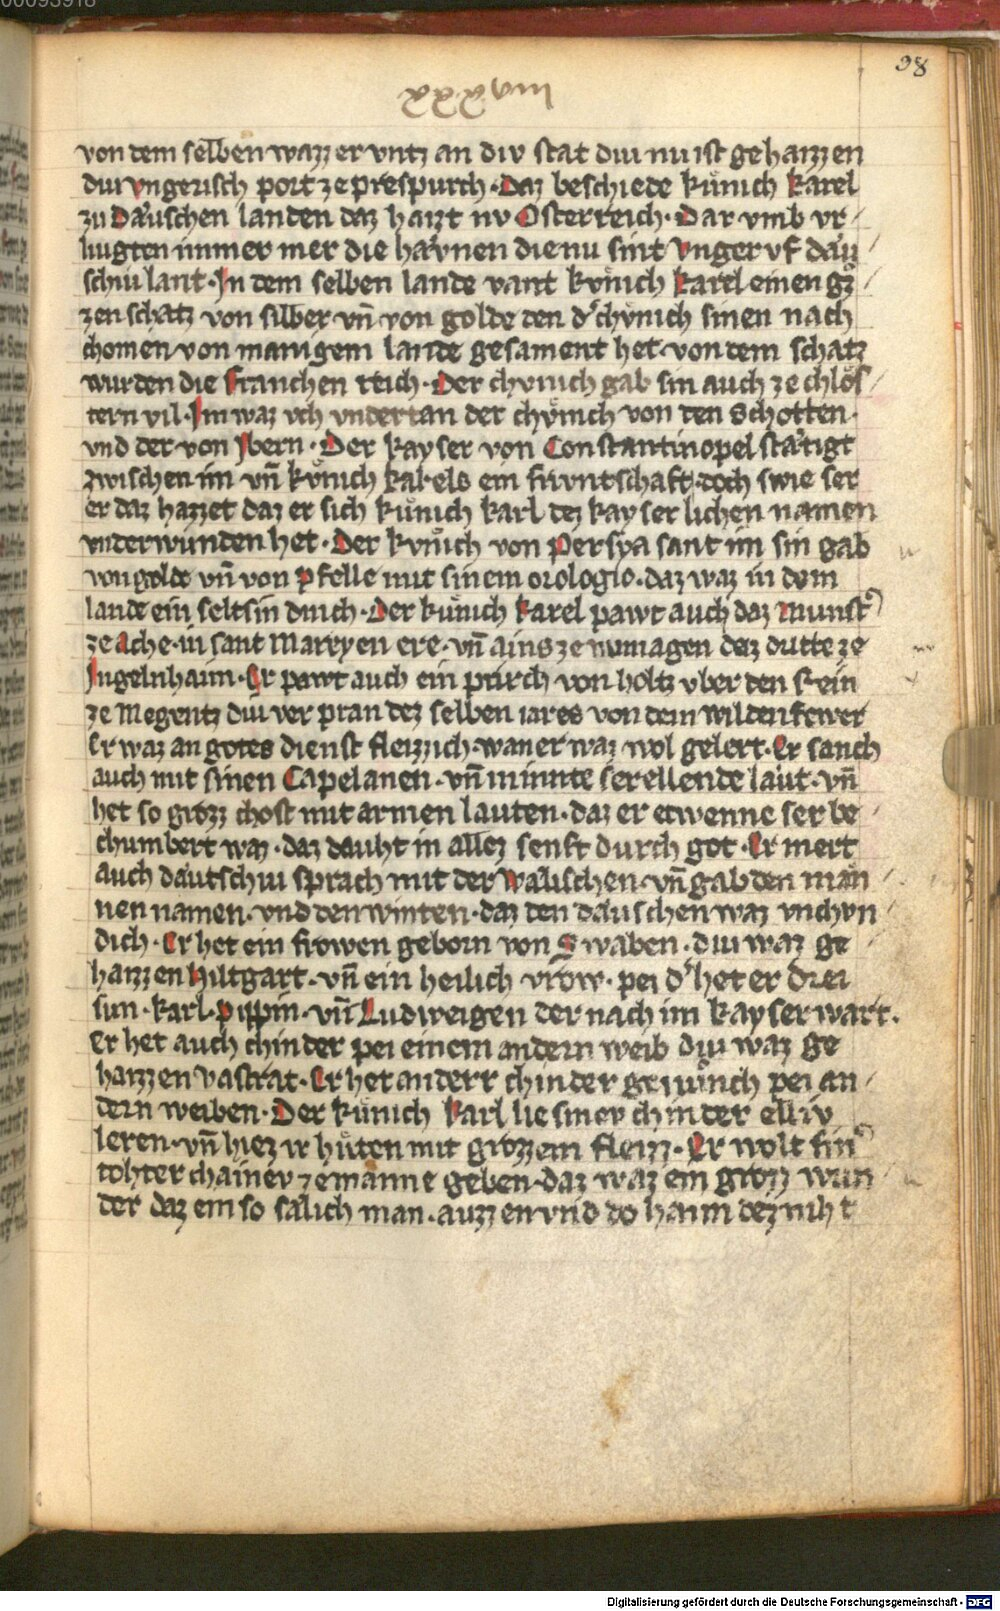 00093918
38
xxxviii
von dem selben wazz er vntz an div stat diu nu ist gehaizzen
diu vngerisch port ze prespurch · Daz beschiede kuͤnich karel
zu Daͤuschen landen daz haizt nv Osterreich · Dar vmb vr
liugten immer mer die haͤvnen die nu sint vnger vf daͤu
schiu lant · In dem selben lande vant kuͤnich karel einen gꝛoͤ
zzen schatz von silber vn̄ von golde den d͛ chvͤnich sinen nach
chomen von manigem lande gesament het · von dem schatz
wurden die franchen reich · Der chvnich gab sin auch ze chloͤs
tern vil · Im waz vch vndertan der chvͤnich von den Schotten ·
vnd der von Jbern · Der kayser von Constantinopel staͤtigt
zwischen im vn̄ kuͤnich karels ein frivntschaft · doch swie ser
er daz hazzet daz er sich kuͤnich karl dez kayserlichen namen
vnderwunden het · Der kvnͤich von Persya sant im sin gab
von golde vn̄ von pfelle mit sinem orologio · daz waz in dem
lande ein seltsin dinch · Der kuͤnich karel pawt auch daz munst͛
ze Ache · in sant Mareyen ere · vn̄ ains ze numagen daz dritte ze
Ingelnhaim · Er pawt auch ein prürch von holtz vber den Rein
ze Megentz diu verpran dez selben iares von dem wilden fewer
Er waz an gotes dienst fleizzich · wan er waz wol gelert · Er sanch
auch mit sinen Capelanen · vn̄ minnte ser ellende laͤut · vn̄
het so grozz chost mit armen lauten · daz er etwenne ser be
chumbert waz · daz dauht in allez senft durch got · Er mert
auch daͤutschiu sprach mit der walischen · vn̄ gab den maͤn
nen namen · vnd den winten · daz den daͤuschen waz vnchvn
dich · Er het ein frowen geborn von Swaben · diu waz ge
haizzen Hiltgart · vn̄ ein heilich vrow · pei d͛ het er drei
sun · karl · pippin · vn̄ Ludweigen der nach im kayser wart ·
Er het auch chinder pei einem andern weib diu waz ge
haizzen vastrat · Er het anderr chinder genuͤch pei an
dern weiben · Der kuͤnich karl lie sinev chinder elliv
leren · vn̄ hiez ir huͤten mit grozzem fleizz · Er wolt sin͛
tohter chainev ze manne geben · daz waz ein grozz wun
der daz ein so saͤlich man · auzzen vnd do haim dez niht
Digitalisierung gefördert durch die Deutsche Forschungsgemeinschaft - DFG